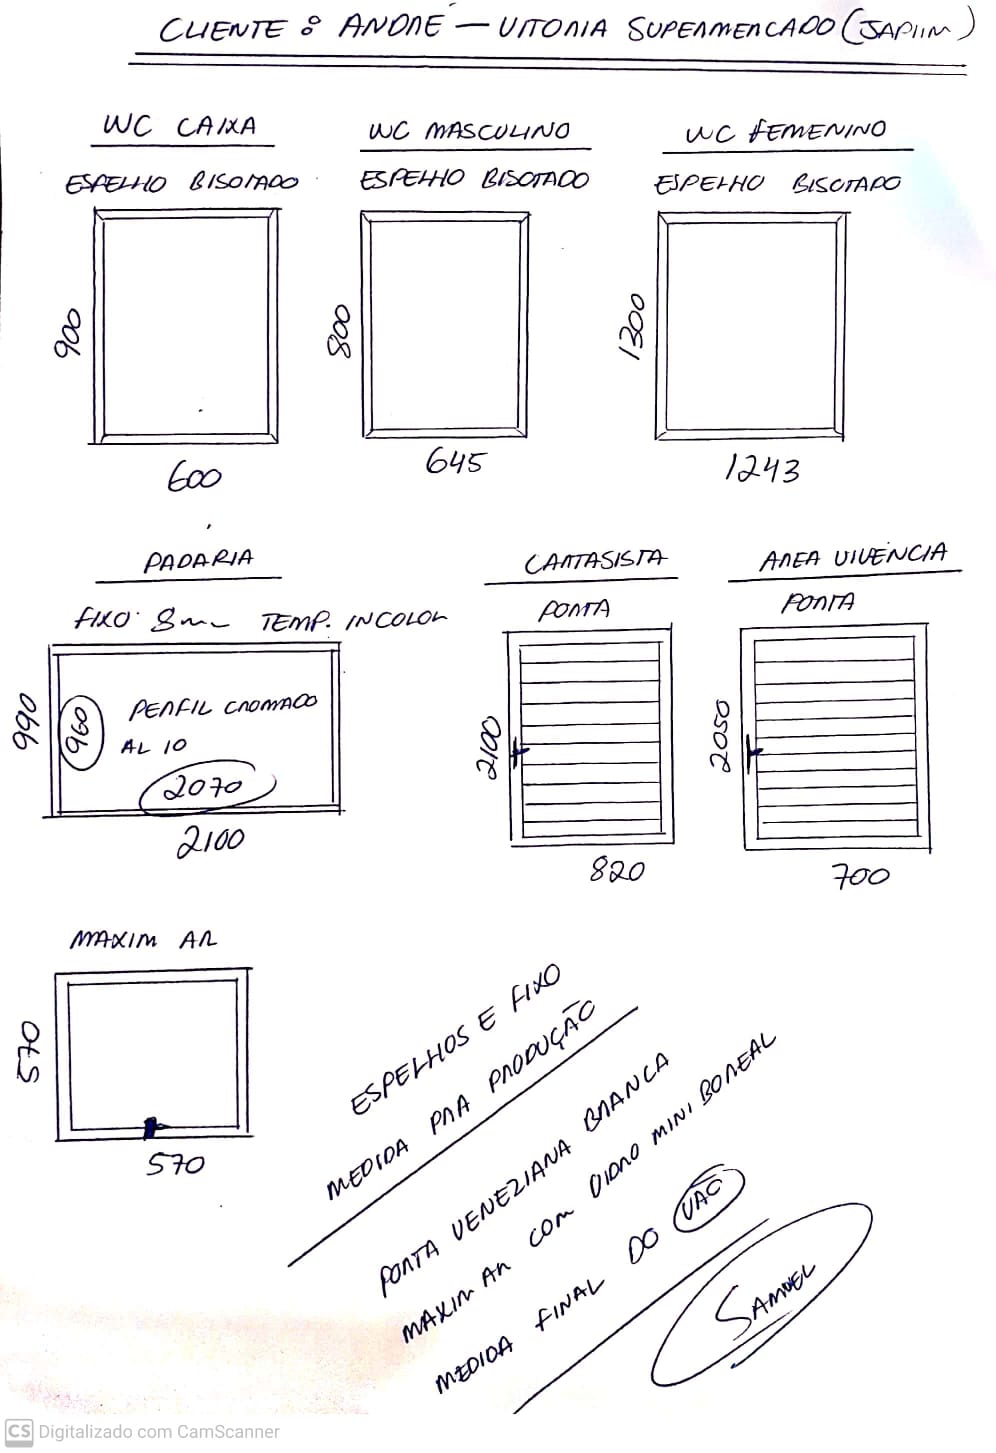 CLIENTE : ANDRÉ — VITORIA SUPERMERCADO (JAPIIM)
WC CAIXA
ESPELHO BISOTADO
900
600
WC MASCULINO
ESPELHO BISOTADO
800
645
WC FEMENINO
ESPELHO BISOTADO
1300
1243
PADARIA
FIXO 8mm TEMP. INCOLOR
990
960
PERFIL CROMADO
AL 10
2070
2100
CARTASISTA
PORTA
2100
820
AREA VIVÊNCIA
PORTA
2050
700
MAXIM AR
570
570
ESPELHOS E FIXO
MEDIDA PRA PRODUÇÃO
PORTA VENEZIANA BRANCA
MAXIM AR COM VIDRO MINI BOREAL
MEDIDA FINAL DO VÃO
SAMUEL
CS Digitalizado com CamScanner